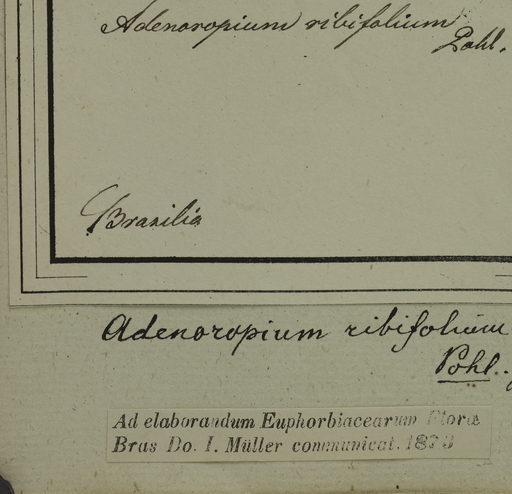 Adenoropium ribifolium
Pohl.
Brasilia
Adenoropium ribifolium
Pohl.
Ad elaborandum Euphorbiacearum Floræ
Bras Do. I. Müller communicat. 1873